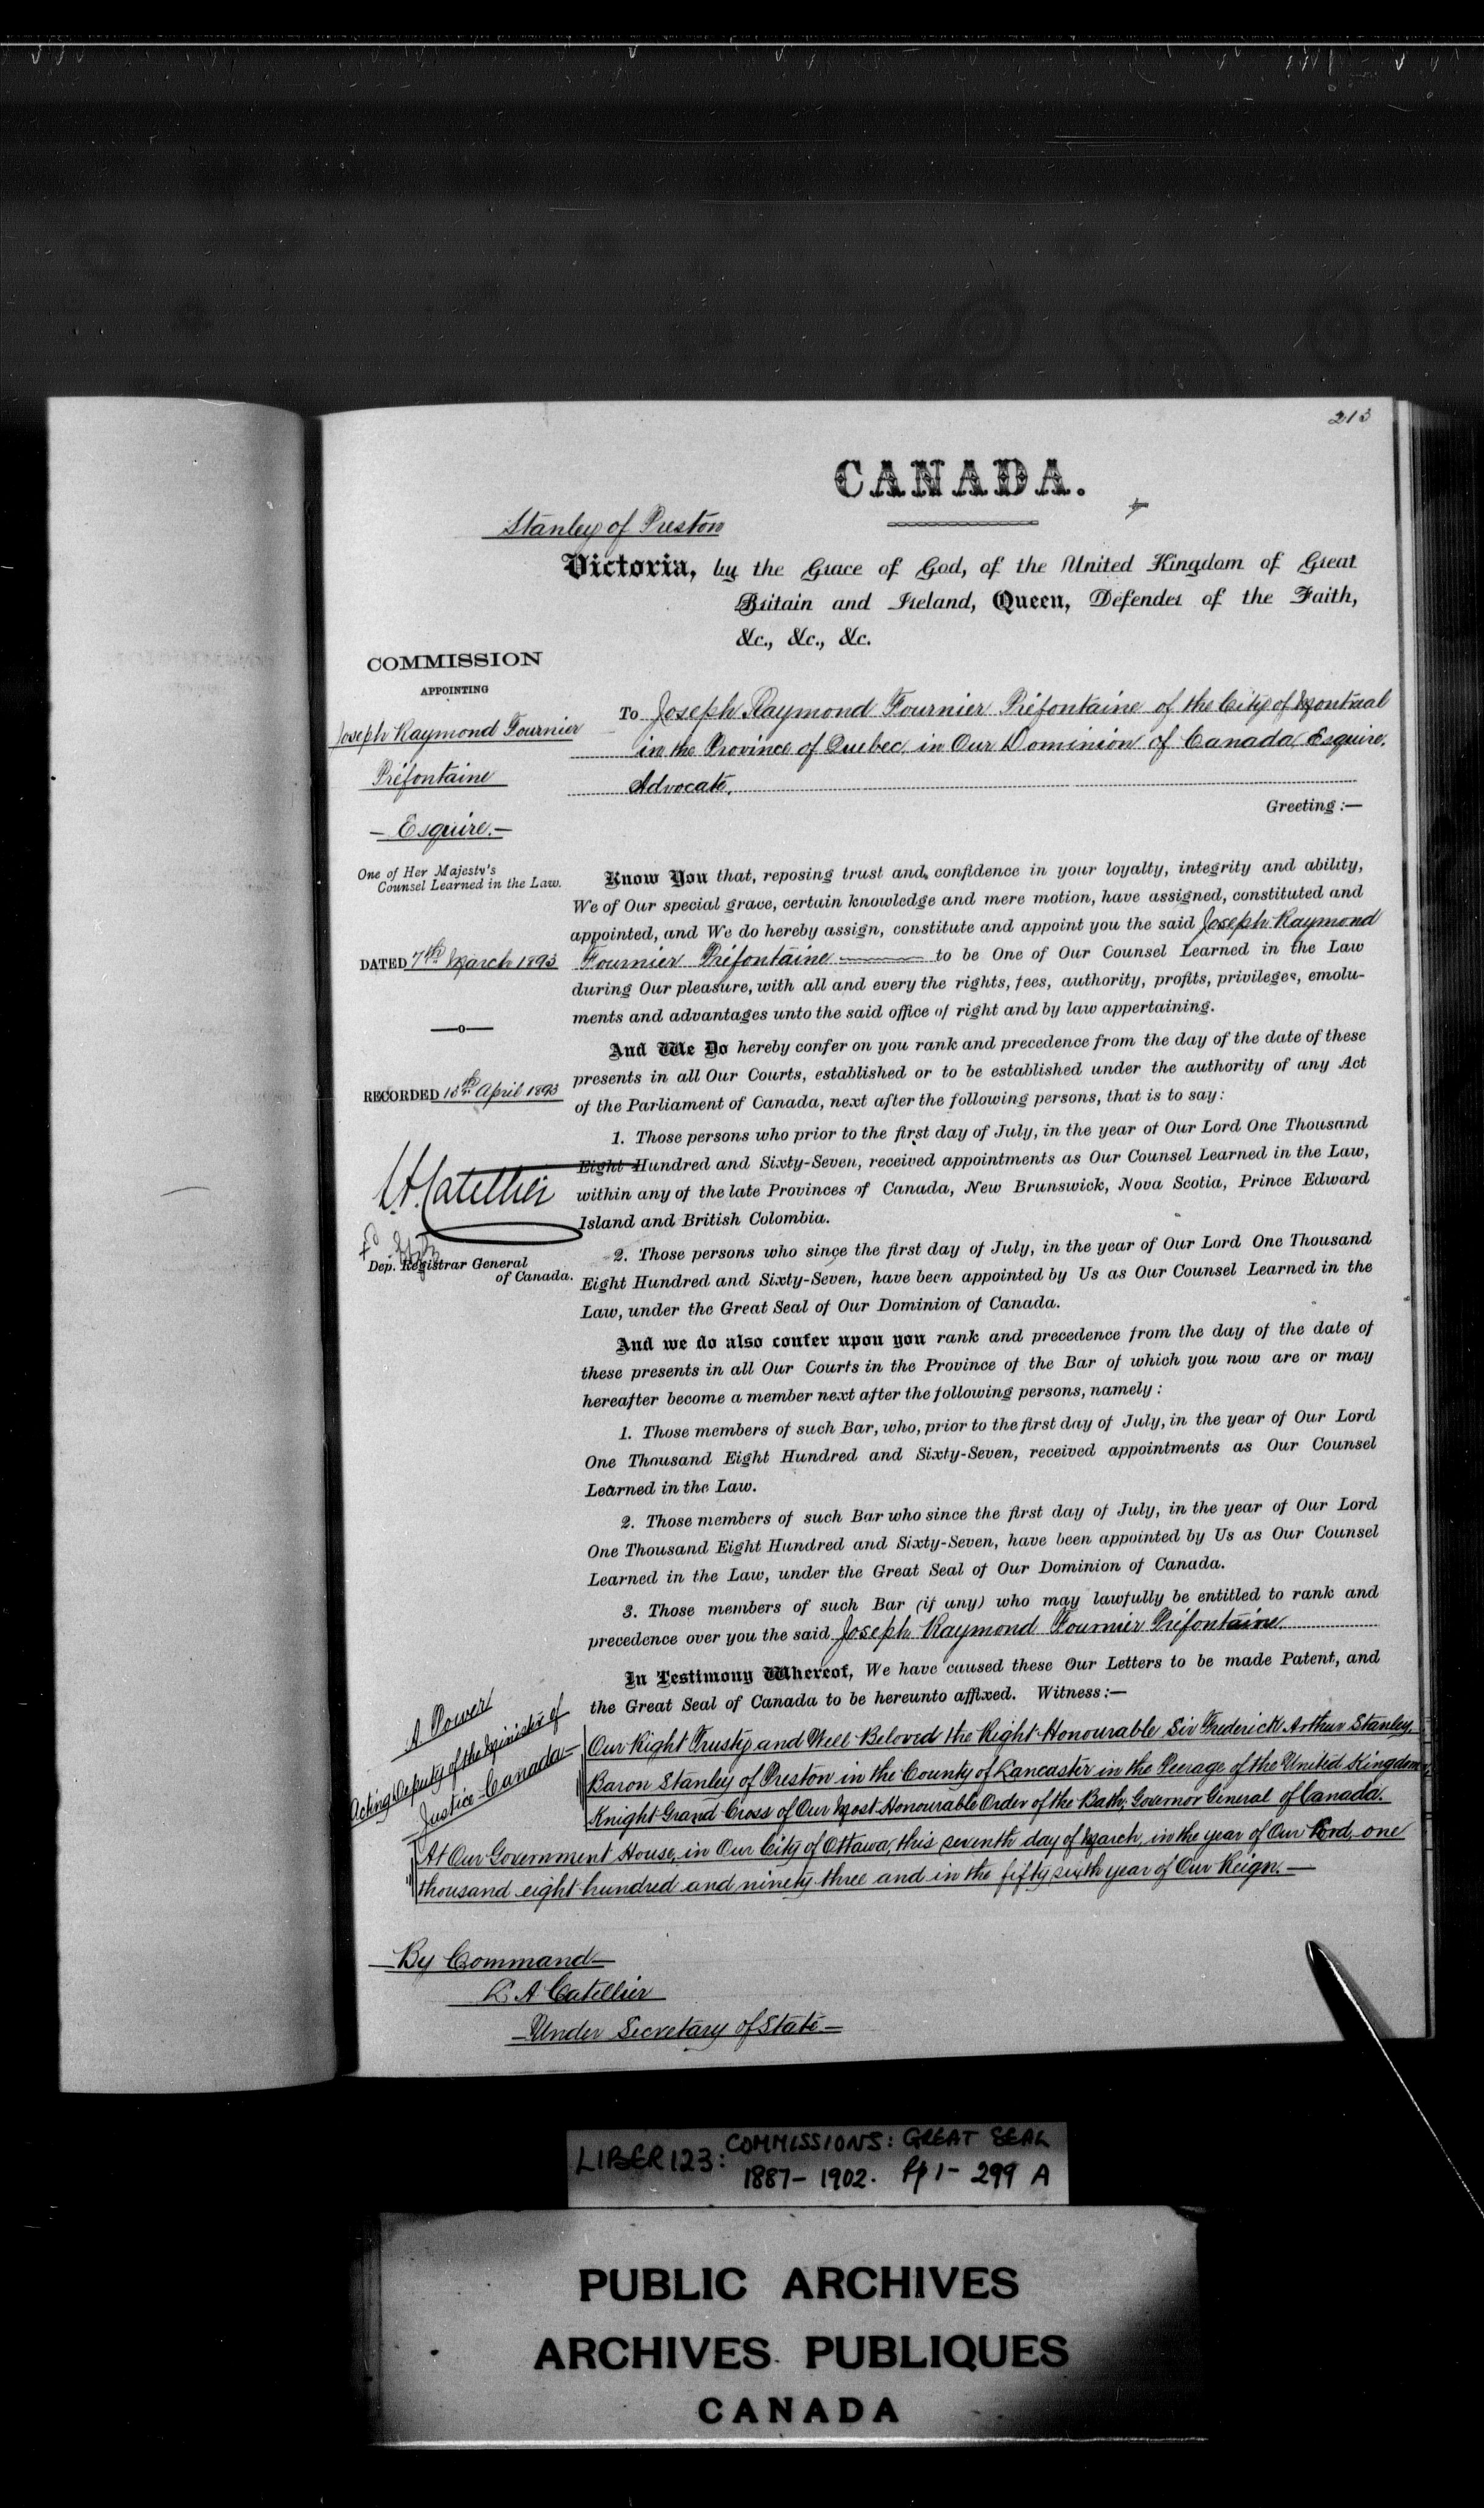 213
CANADA.
Stanley of Preston
Victoria, by the Grace of God, of the United Kingdom of Great
Britain and Ireland, Queen, Defender of the Faith,
&c., &c., &c.
COMMISSION
APPOINTING
Joseph Raymond Fournier
Préfontaine
— Esquire.—
One of Her Majesty's
Counsel Learned in the Law.
DATED 7th March 1893
—o—
RECORDED 18th April 1893
L.A. Catellier
Dep. Registrar General
of Canada.
To Joseph Raymond Fournier Préfontaine of the City of Montreal
in the Province of Quebec in Our Dominion of Canada, Esquire,
Advocate.
Greeting :—
Know You that, reposing trust and confidence in your loyalty, integrity and ability,
We of Our special grace, certain knowledge and mere motion, have assigned, constituted and
appointed, and We do hereby assign, constitute and appoint you the said Joseph Raymond
Fournier Préfontaine to be One of Our Counsel Learned in the Law
during Our pleasure, with all and every the rights, fees, authority, profits, privileges, emolu-
ments and advantages unto the said office of right and by law appertaining.
And We Do hereby confer on you rank and precedence from the day of the date of these
presents in all Our Courts, established or to be established under the authority of any Act
of the Parliament of Canada, next after the following persons, that is to say:
1. Those persons who prior to the first day of July, in the year of Our Lord One Thousand
Eight Hundred and Sixty-Seven, received appointments as Our Counsel Learned in the Law,
within any of the late Provinces of Canada, New Brunswick, Nova Scotia, Prince Edward
Island and British Colombia.
2. Those persons who since the first day of July, in the year of Our Lord One Thousand
Eight Hundred and Sixty-Seven, have been appointed by Us as Our Counsel Learned in the
Law, under the Great Seal of Our Dominion of Canada.
And we do also confer upon you rank and precedence from the day of the date of
these presents in all Our Courts in the Province of the Bar of which you now are or may
hereafter become a member next after the following persons, namely :
1. Those members of such Bar, who, prior to the first day of July, in the year of Our Lord
One Thousand Eight Hundred and Sixty-Seven, received appointments as Our Counsel
Learned in the Law.
2. Those members of such Bar who since the first day of July, in the year of Our Lord
One Thousand Eight Hundred and Sixty-Seven, have been appointed by Us as Our Counsel
Learned in the Law, under the Great Seal of Our Dominion of Canada.
3. Those members of such Bar (if any) who may lawfully be entitled to rank and
precedence over you the said Joseph Raymond Fournier Préfontaine.
In Testimony Whereof, We have caused these Our Letters to be made Patent, and
the Great Seal of Canada to be hereunto affixed. Witness:—
A. Power
Acting Deputy of the Minister of
Justice—Canada—
Our Right Trusty and Well-Beloved the Right Honourable Sir Frederick Arthur Stanley,
Baron Stanley of Preston in the County of Lancaster in the Peerage of the United Kingdom
Knight Grand Cross of Our Most Honourable Order of the Bath; Governor General of Canada.
At Our Government House, in Our City of Ottawa, this seventh day of March in the year of Our Lord, one
thousand eight hundred and ninety three and in the fifty sixth year of Our Reign.—
—By Command—
L. A. Catellier
—Under Secretary of State.—
LIBER 123: COMMISSIONS: GREAT SEAL
1887– 1902. Pp 1– 299 A
PUBLIC ARCHIVES
ARCHIVES PUBLIQUES
CANADA